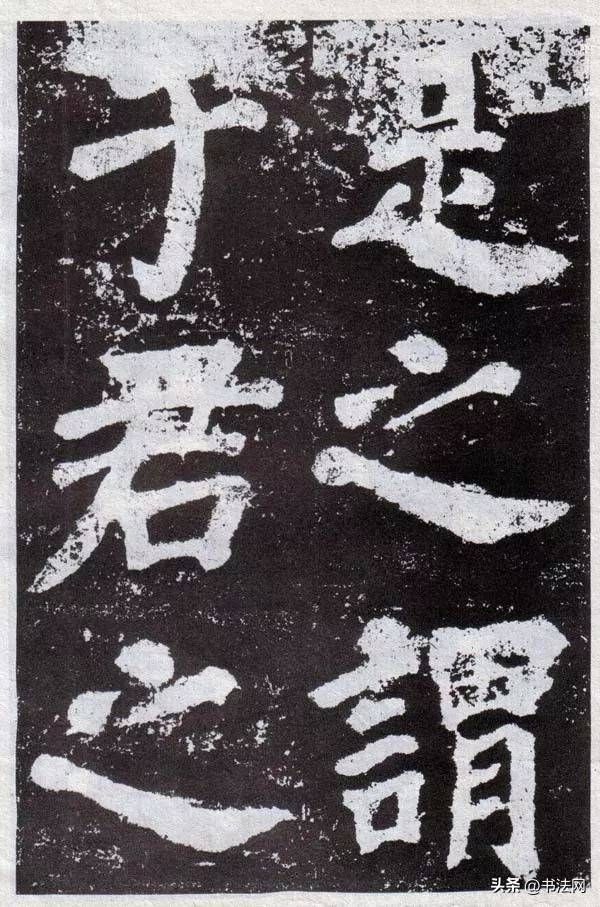 是之謂
于君之
头条 @书法网